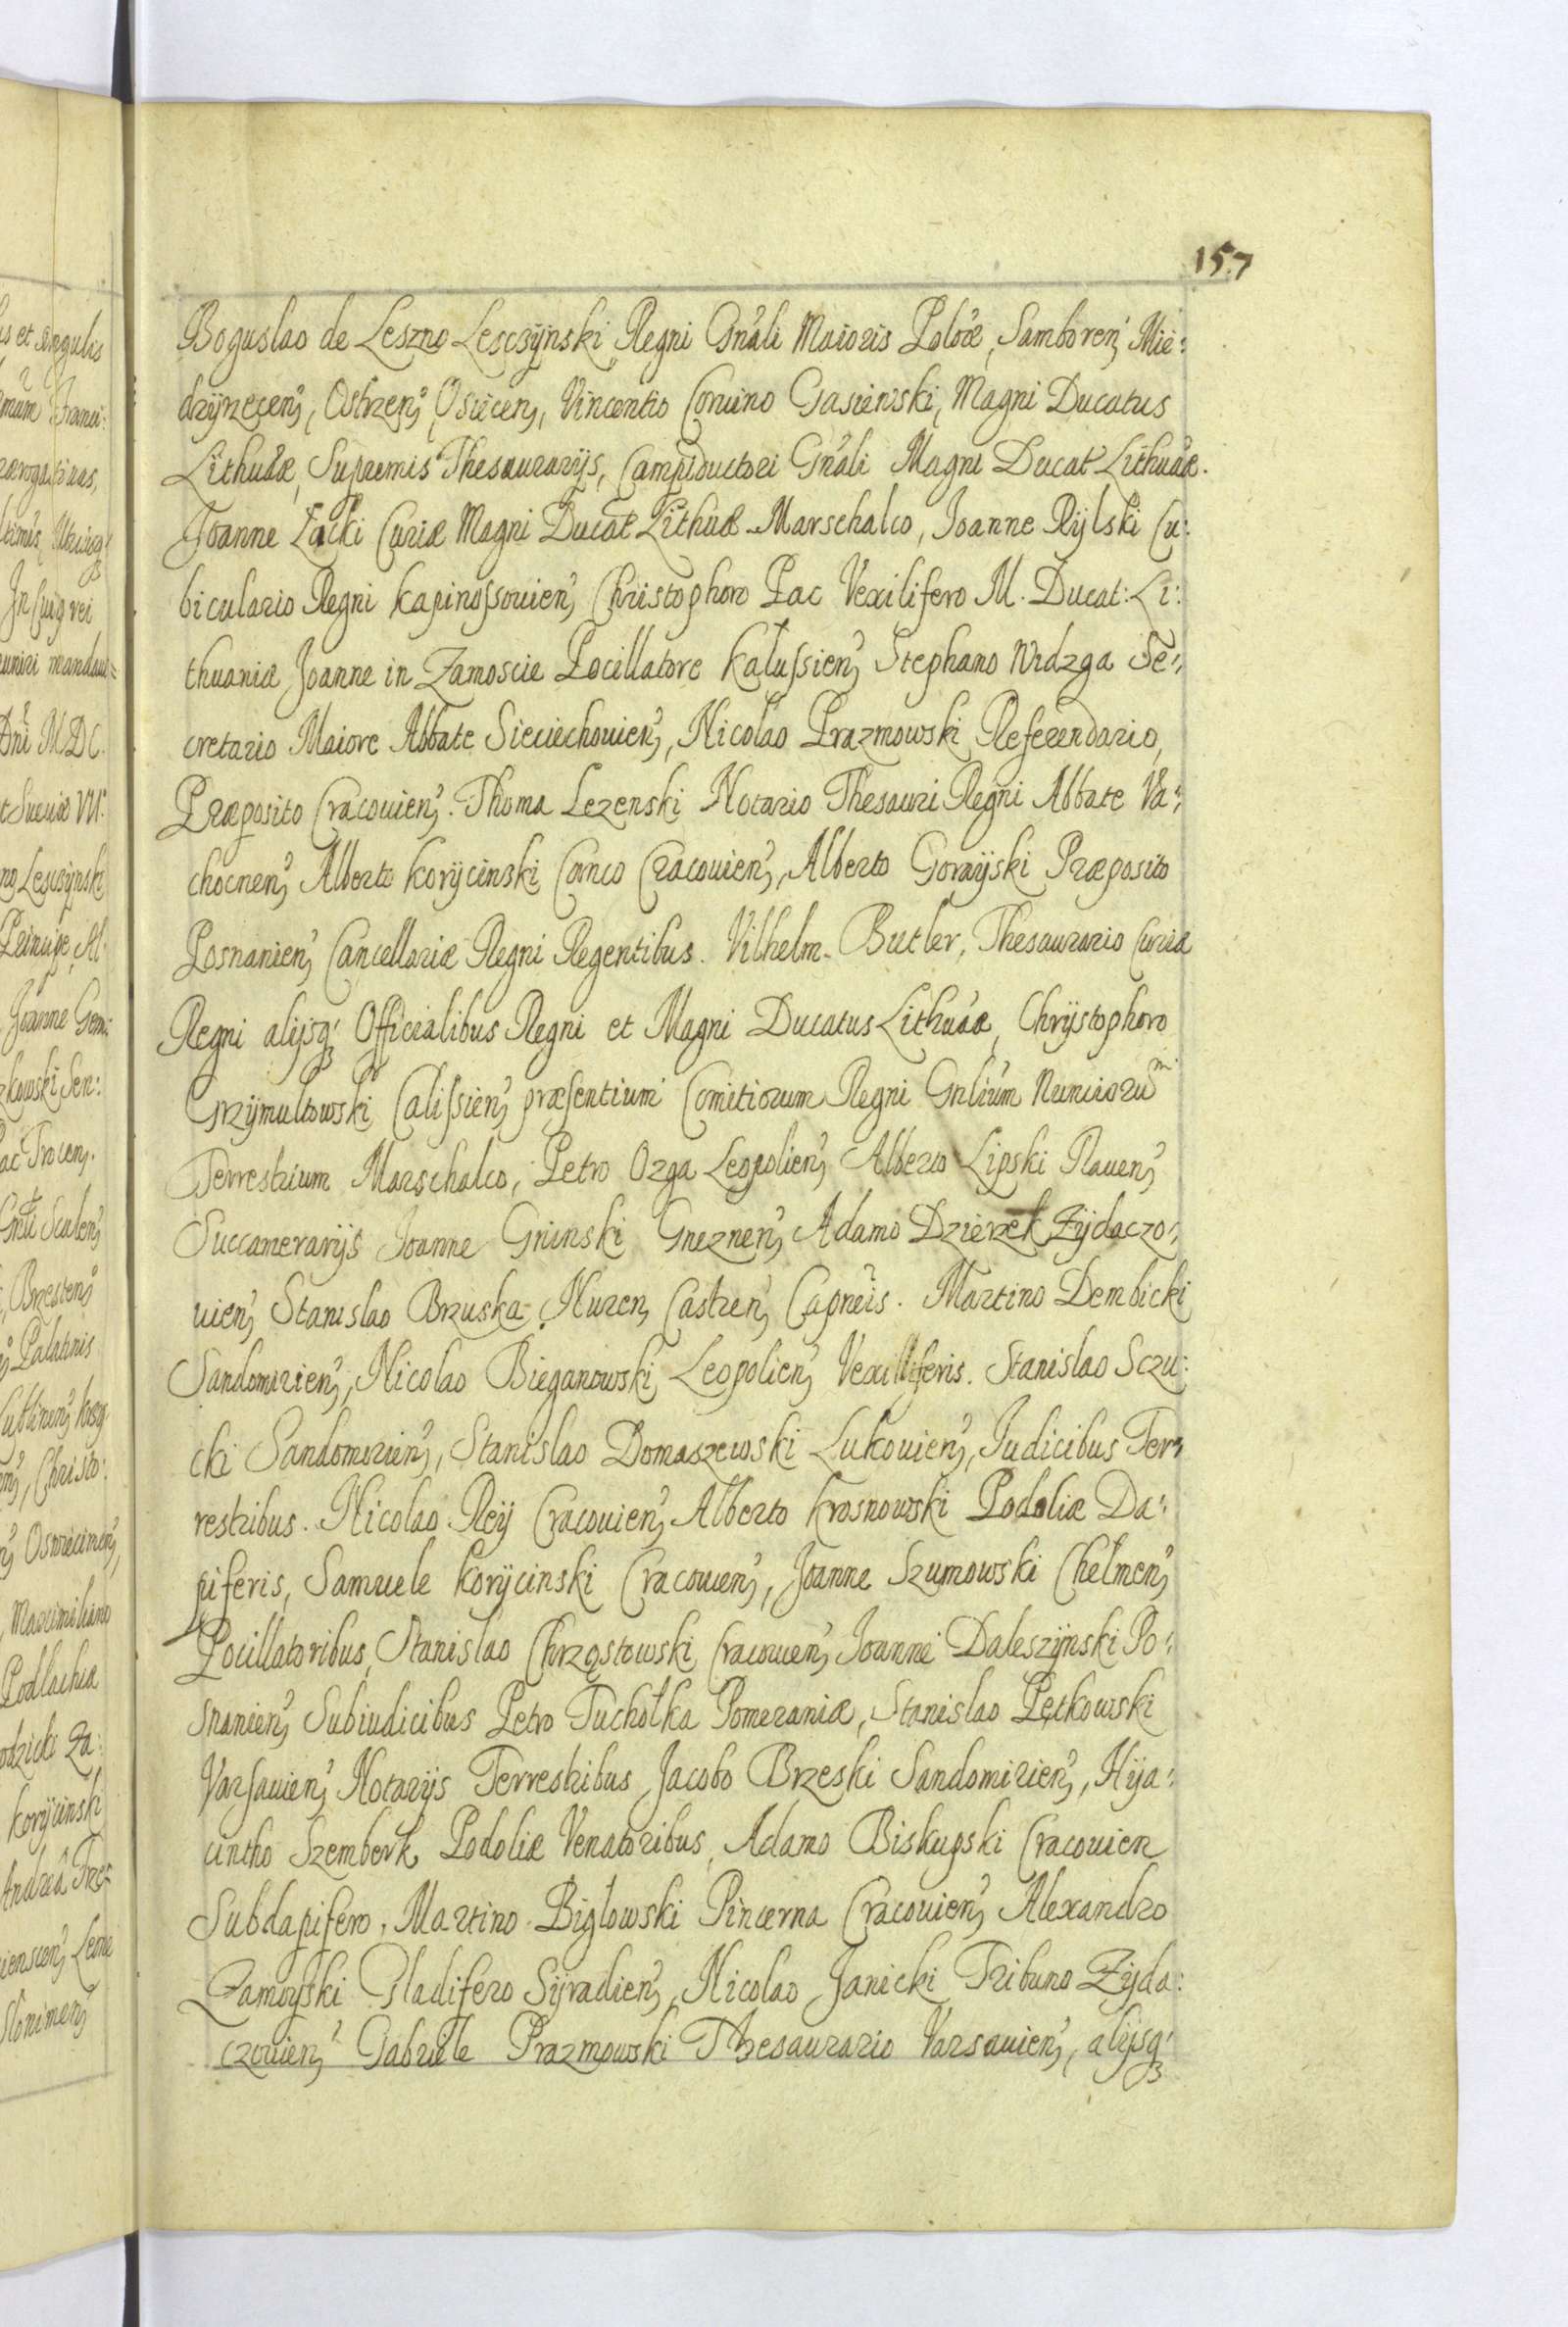 157
Boguslao de Leszno Lesczÿnski Regni Gnáli Maioris Poloæ, Samboren, Mie:
dzÿrzecen, Ostrzen, Osiecen, Vincentio Corvino Gasiewski, Magni Ducatus
Lithuaæ, Supremis Thesaurarÿs, Campiductori Gnáli Magni Ducat Lithuaæ.
Joanne Zacki Curiæ Magni Ducat Lithuæ Marschalco, Joanne Rÿlski Cu:
biculario Regni Kapinossouien, Christophoro Pac Vexilifero M. Ducat: Li:
thuaniæ Joanne in Zamoscie Pocillatore Kalussien, Stephano Wrdzga Se:
cretario Maiore Abbate Sieciechouien, Nicolao Prazmowski Referendario,
Præposito Cracouien. Thoma Lezenski Notario Thesauri Regni Abbate Va:
chocnen, Alberto Korÿcinski Canco Cracouien, Alberto Goraÿski Præposito
Posnanien, Cancellariæ Regni Regentibus. Vilhelm. Butler, Thesaurario Curiæ
Regni alÿsq3 Officialibus Regni et Magni Ducatus Lithuaæ, Chrÿstophoro
Grzÿmultowski Calissien, præsentium Comitiorum Regni Gnlium Nuncioru m
Terrestrium Marschalco, Petro Ozga Leopolien, Alberto Lipski Rauen,
Succamerarÿs Joanne Gninski Gneznen, Adamo Dzierzek Zÿdaczo:
uien, Stanislao Bruska Nuren, Castren, Capneis. Martino Dembicki
Sandomirien, Nicolao Bieganowski Leopolien, Vexilliferis. Stanislao Sczu:
cki Sandomirien, Stanislao Domaszewski Lukouien, Iudicibus Ter:
restribus. Nicolao Reÿ Cracouien, Alberto Krosnowski Podoliæ Da:
piferis, Samuele Korÿcinski Cracouien, Joanne Szumowski Chelmen,
Pocillatoribus, Stanislao Chrząstowski Cracouien, Joanne Daleszÿnski Po:
snanien, Subiudicibus Petro Tuchołka Pomeraniæ, Stanislao Pętkowski
Varsauien, Notarÿs Terrestribus Jacobo Brzeski Sandomirien, Hÿa:
cintho Szemberk Podoliæ Venatoribus, Adamo Biskupski Cracouien
Subdapifero, Martino Biglowski Pincerna Cracouien, Alexandro
Zamoÿski Gladifero Sÿradien, Nicolao Janicki Tribuno Zÿda:
czouien, Gabriele Prazmowski Thesaurario Varsauien, alÿsq3